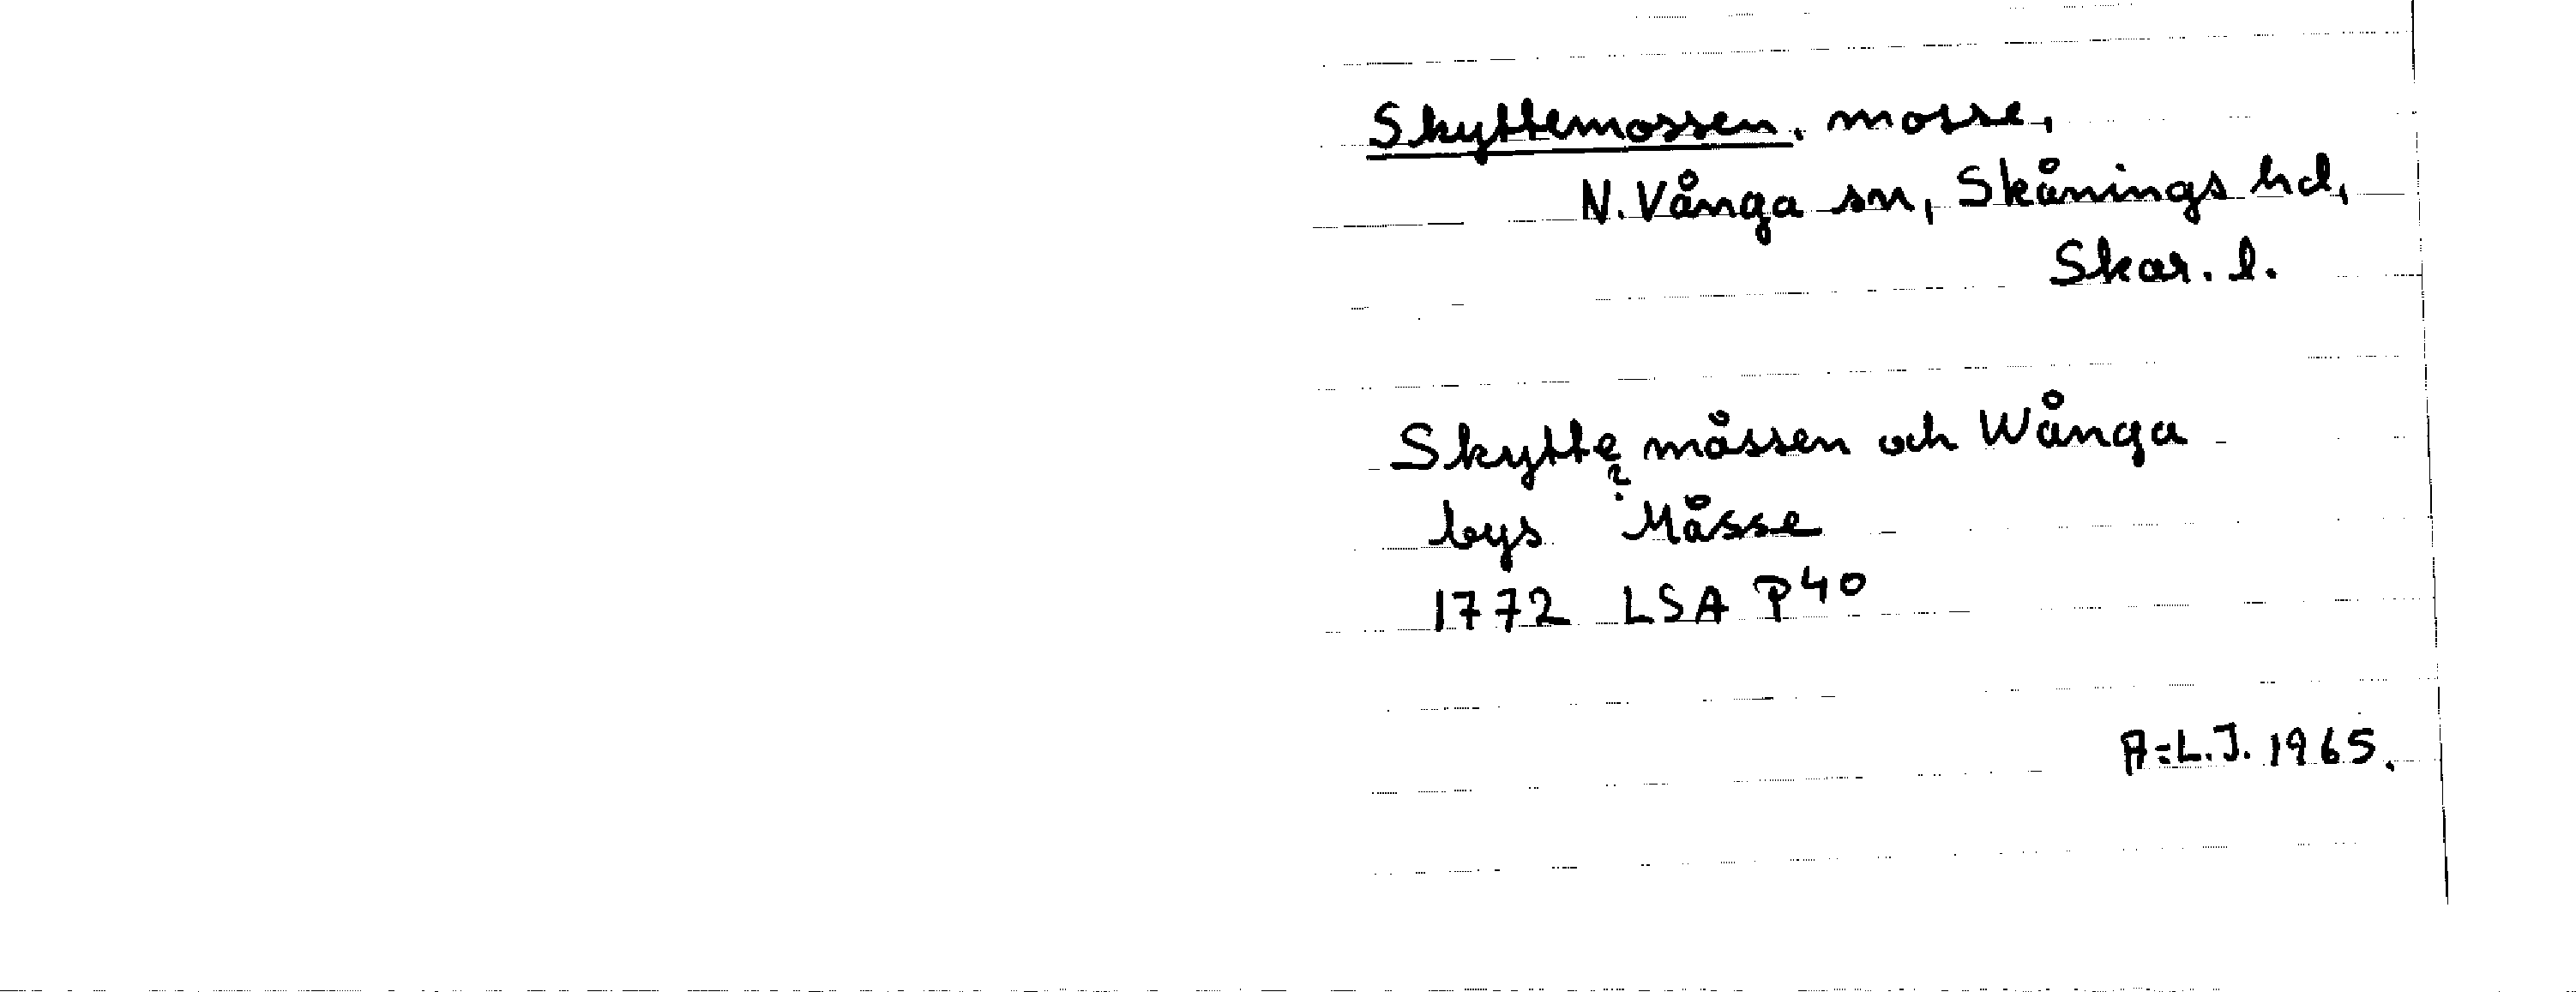 Skyttemossen, mosse,
N. Vånga sn, Skånings hd,
Skar. l.
Skytte måssen och Wånga
?
bys Måsse
1772 LSA P40
A-L.J. 1965.